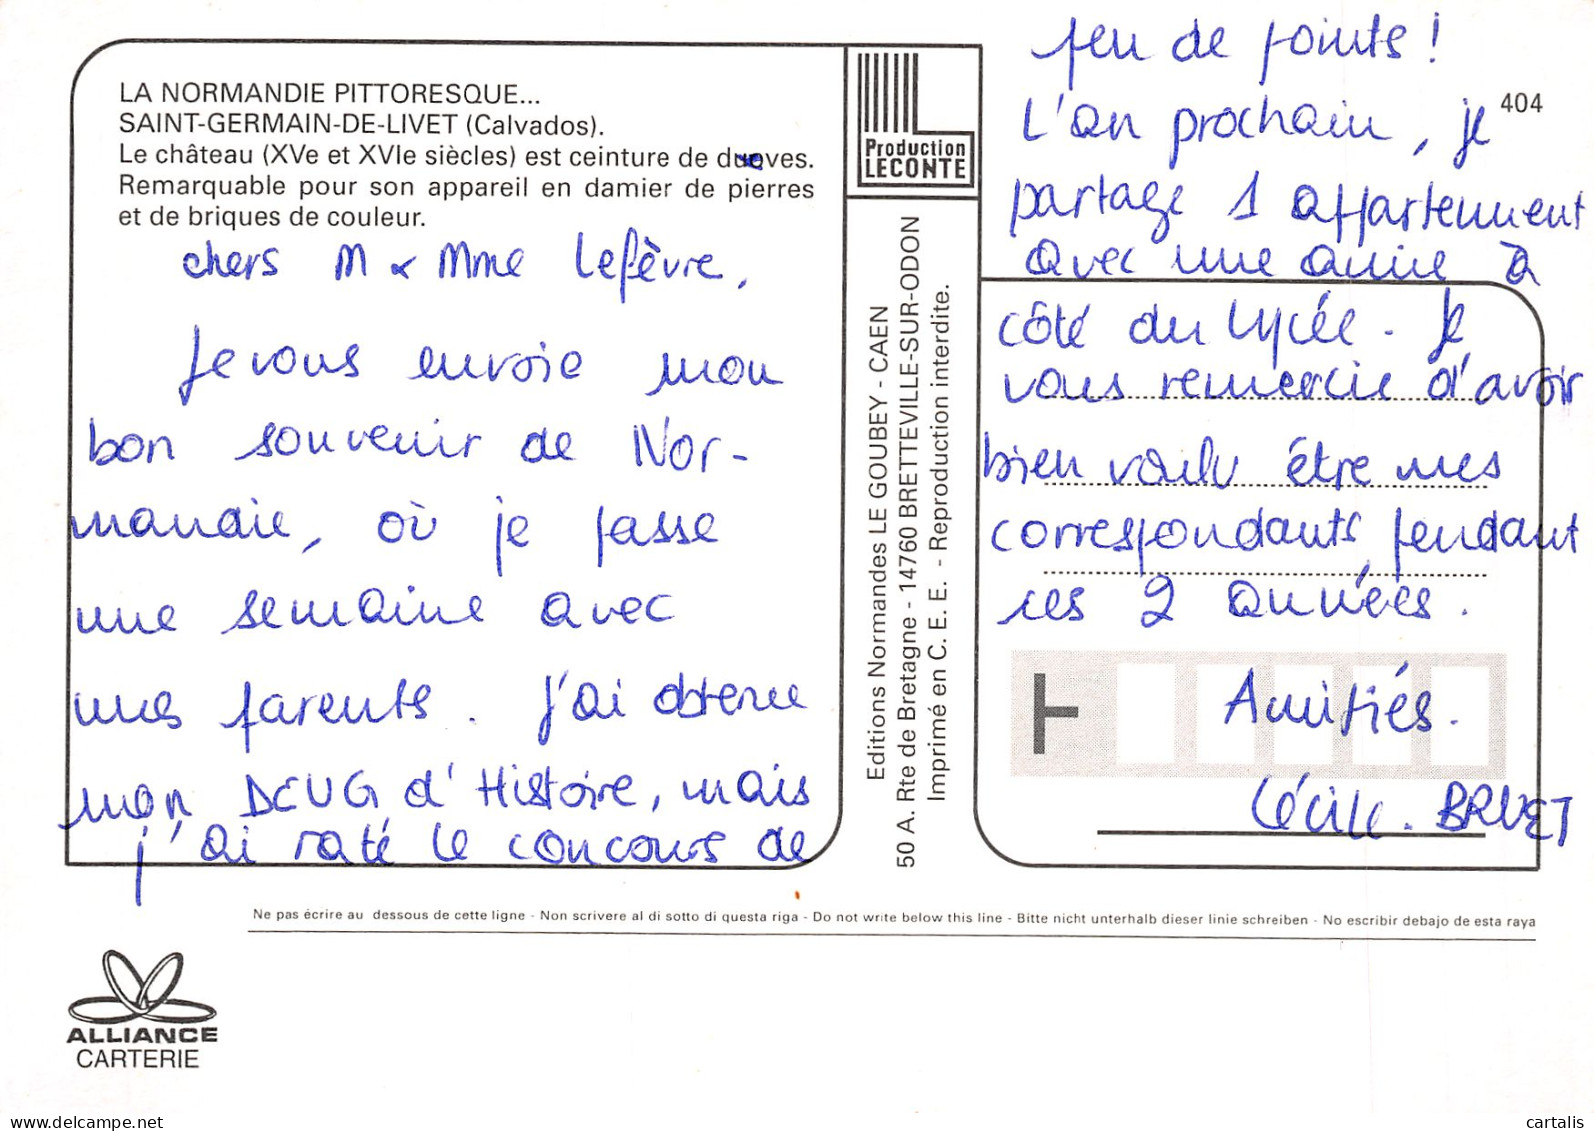 LA NORMANDIE PITTORESQUE...
SAINT-GERMAIN-DE-LIVET (Calvados).
Le château (XVe et XVIe siècles) est ceinture de douves.
Remarquable pour son appareil en damier de pierres
et de briques de couleur.
chers M & Mme Lefèvre,
Je vous envoie mon
bon souvenir de Nor-
mandie, où je passe
une semaine avec
mes parents. J'ai obtenu
mon DEUG d'Histoire, mais
j'ai raté le concours de
Production
LECONTE
Editions Normandes LE GOUBEY - CAEN
50 A. Rte de Bretagne - 14760 BRETTEVILLE-SUR-ODON
Imprimé en C. E. E. - Reproduction interdite.
peu de points !
404
L'an prochain, je
partage 1 appartement
avec une amie à
côté du lycée. Je
vous remercie d'avoir
bien voulu être mes
correspondants pendant
ces 2 années.
Amitiés.
Cécile. BRUET
Ne pas écrire au dessous de cette ligne - Non scrivere al di sotto di questa riga - Do not write below this line - Bitte nicht unterhalb dieser linie schreiben - No escribir debajo de esta raya
ALLIANCE
CARTERIE
delcampe.net
cartalis